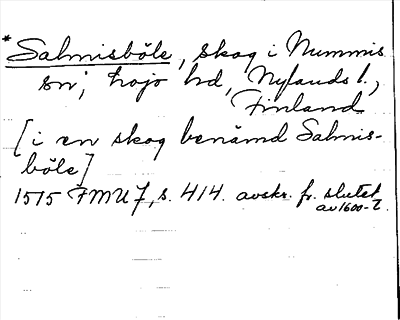 * Salmisböle, skog i Nummis
sn, Lojo hd, Nylands l.,
Finland
[i en skog benämd Salmis-
böle]
1515 FMU 7, s. 414. avskr. fr. slutet
av 1600-t.